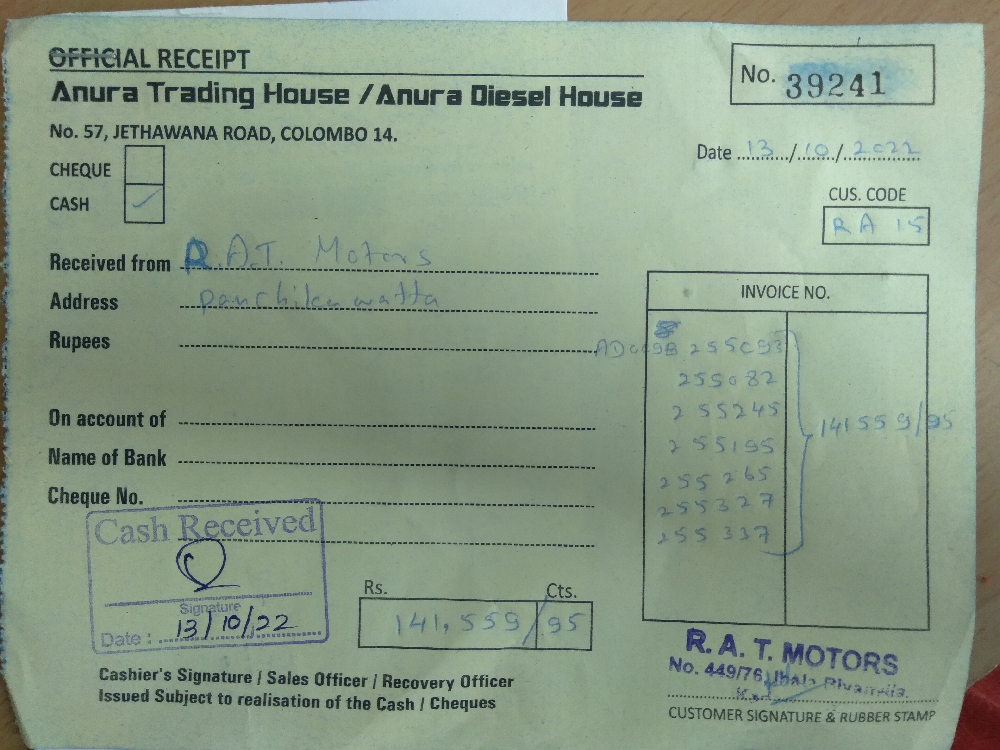 OFFICIAL RECEIPT
No. 39241
Anura Trading House / Anura Diesel House
No. 57, JETHAWANA ROAD, COLOMBO 14.
Date 13/10/2022
CHEQUE
CASH ✓
CUS. CODE
RA 15
Received from R.A.T. Motors
Address panchikawatta
Rupees
INVOICE NO.
255093
255082
255245
255195
255265
255327
255337
141559/95
On account of
Name of Bank
Cheque No.
Cash Received
Signature
Date : 13/10/22
Rs. Cts.
141,559/95
Cashier's Signature / Sales Officer / Recovery Officer
Issued Subject to realisation of the Cash / Cheques
R. A. T. MOTORS
No. 449/76,
CUSTOMER SIGNATURE & RUBBER STAMP